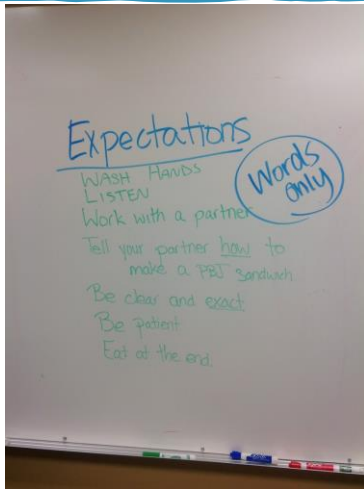 Expectations
WASH HANDS
LISTEN
Words
only
Work with a partner
Tell your partner how to
make a PBJ Sandwich
Be clear and exact
Be patient
Eat at the end.